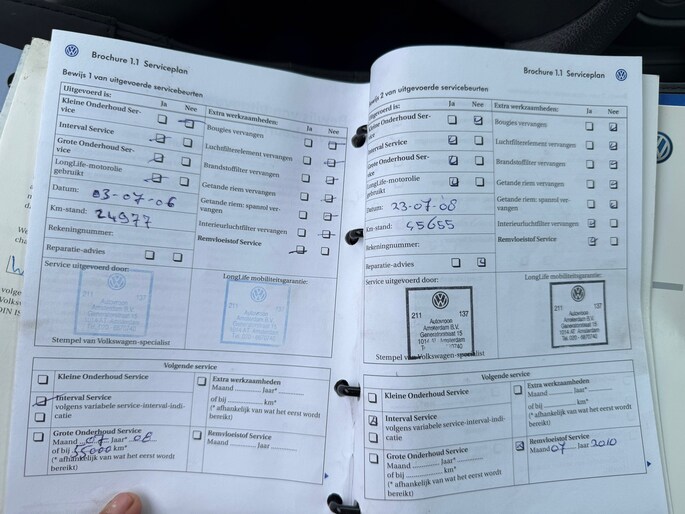 Brochure 1.1 Serviceplan
Bewijs 1 van uitgevoerde servicebeurten
Uitgevoerd is: Ja Nee
Kleine Onderhoud Ser-
vice
Interval Service
Grote Onderhoud Ser-
vice
LongLife-motorolie
gebruikt
Datum: 03-07-06
Km-stand: 24977
Rekeningnummer:
Reparatie-advies
Extra werkzaamheden: Ja Nee
Bougies vervangen
Luchtfilterelement vervangen
Brandstoffilter vervangen
Getande riem vervangen
Getande riem: spanrol ver-
vangen
Interieurluchtfilter vervangen
Remvloeistof Service
Service uitgevoerd door:
LongLife mobiliteitsgarantie:
211 137
Autovroon
Amsterdam B.V.
211 137
Autovroon
Amsterdam B.V.
Stempel van Volkswagen-specialist
Volgende service
Kleine Onderhoud Service
Interval Service
volgens variabele service-interval-indi-
catie
Grote Onderhoud Service
Maand 07 Jaar* 08
of bij 55000 km*
(* afhankelijk van wat het eerst wordt
bereikt)
Extra werkzaamheden
Maand Jaar*
of bij km*
(* afhankelijk van wat het eerst wordt
bereikt)
Remvloeistof Service
Maand Jaar
Brochure 1.1 Serviceplan
Bewijs 2 van uitgevoerde servicebeurten
Uitgevoerd is: Ja Nee
Kleine Onderhoud Ser-
vice
Interval Service
Grote Onderhoud Ser-
vice
LongLife-motorolie
gebruikt
Datum: 23-07-08
Km-stand: 55655
Rekeningnummer:
Reparatie-advies
Extra werkzaamheden: Ja Nee
Bougies vervangen
Luchtfilterelement vervangen
Brandstoffilter vervangen
Getande riem vervangen
Getande riem: spanrol ver-
vangen
Interieurluchtfilter vervangen
Remvloeistof Service
Service uitgevoerd door:
LongLife mobiliteitsgarantie:
211 137
Autovroon
Amsterdam B.V.
Generatorstraat 15
211 137
Autovroon
Amsterdam B.V.
Generatorstraat 15
Stempel van Volkswagen-specialist
Volgende service
Kleine Onderhoud Service
Interval Service
volgens variabele service-interval-indi-
catie
Grote Onderhoud Service
Maand Jaar*
of bij km*
(* afhankelijk van wat het eerst wordt
bereikt)
Extra werkzaamheden
Maand Jaar*
of bij km*
(* afhankelijk van wat het eerst wordt
bereikt)
Remvloeistof Service
Maand 07 Jaar 2010